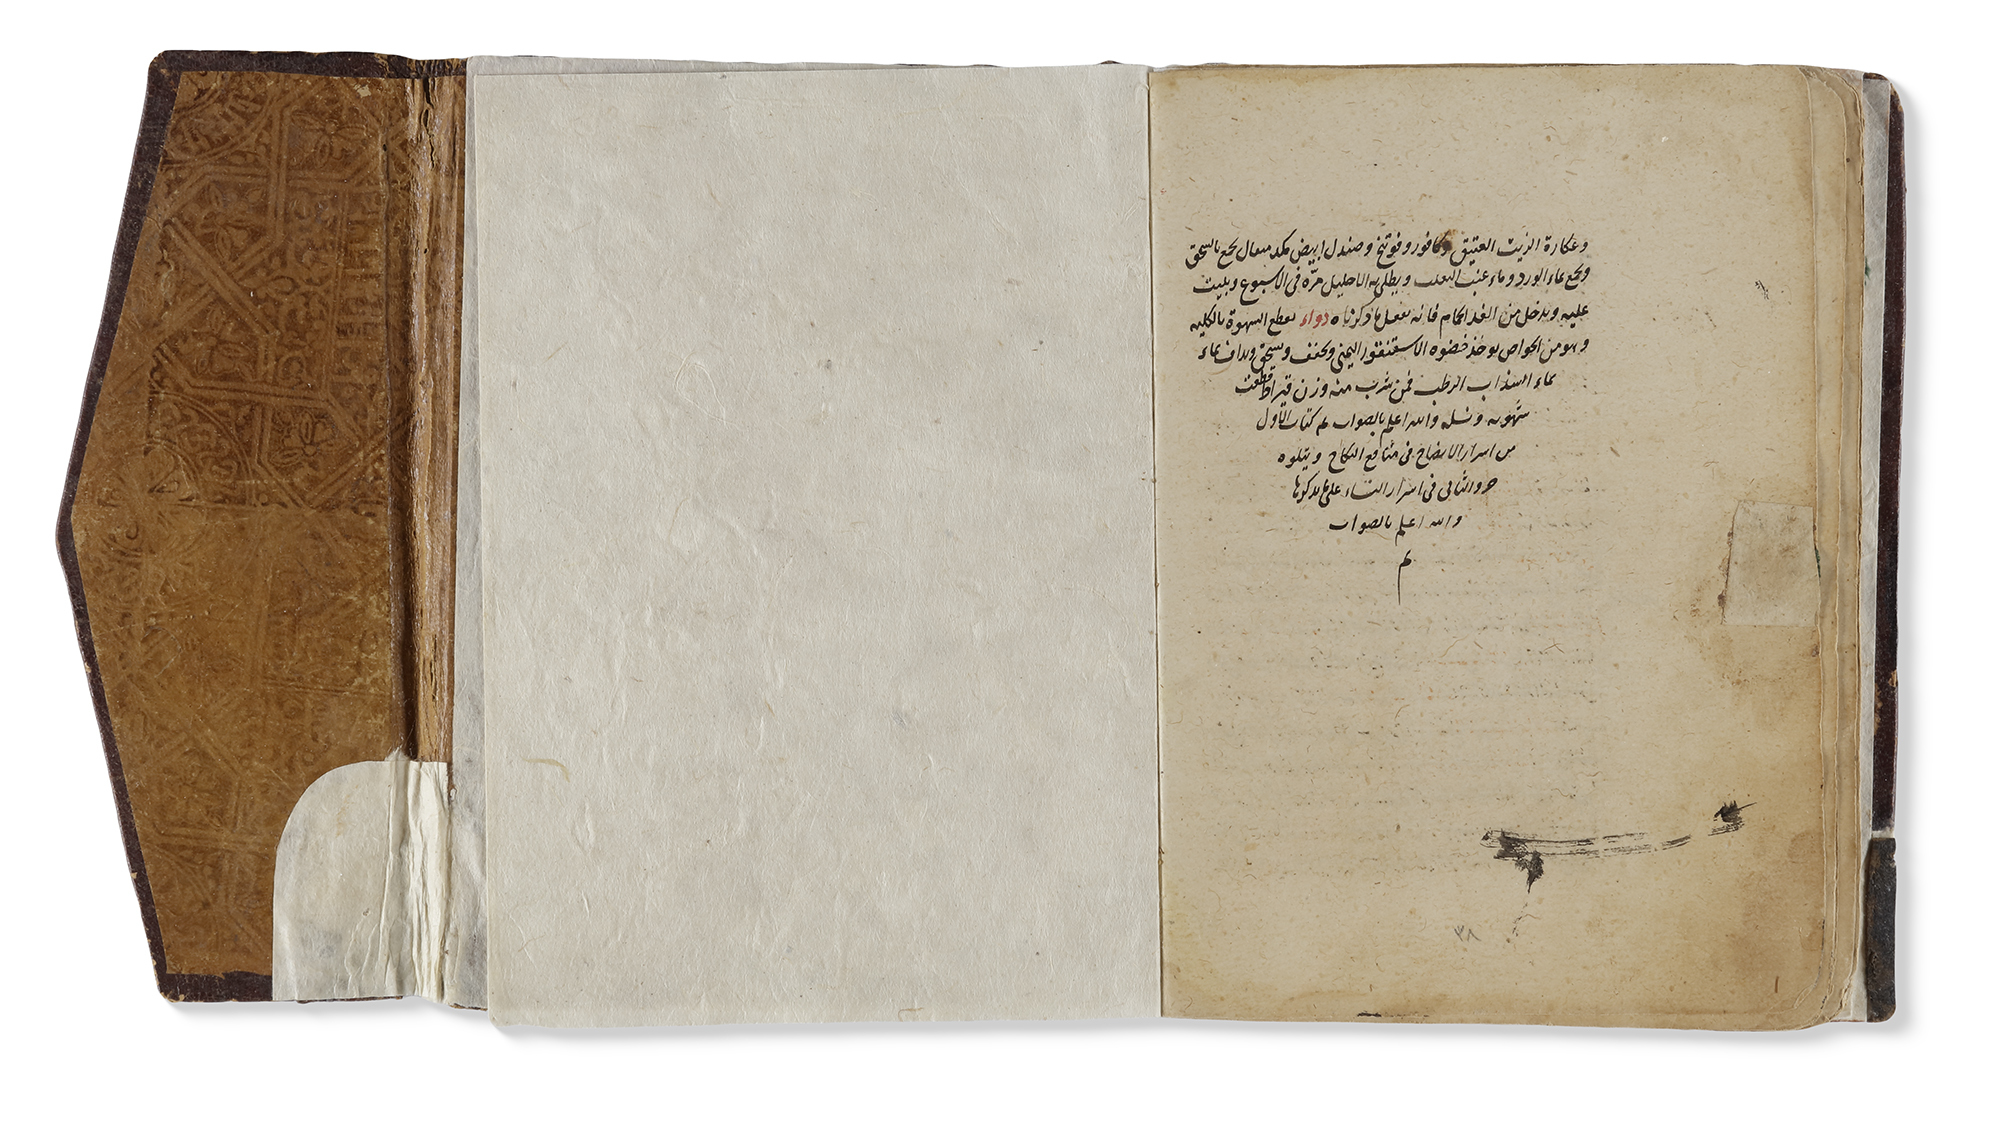 وعكارة الزيت العتيق وكافور وفوتنج وصندل ابيض مكد مثعال يجمع بالسحق
ويجمع بماء الورد وماء عنب الثعلب ويطلى به الاحليل مرّة فى الاسبوع ويبيت
عليه ويدخل من الغد الحمام فانه يفعل ما ذكرناه دواء يقطع الشهوة بالكليه
وهو من الخواص يوخذ خصوه الاسقنقور اليمنى ويجفف ويسحق ويداف بماء
بماء السذاب الرطب فمن شرب منه وزن قيراط قطعت
شهوته ونسله والله اعلم بالصواب تم كتاب الاول
من اسرار الايضاح فى منافع النكاح ويتلوه
جزو الثانى فى اسرار النساء على ما يذكرنا
والله اعلم بالصواب
تم
٣٨